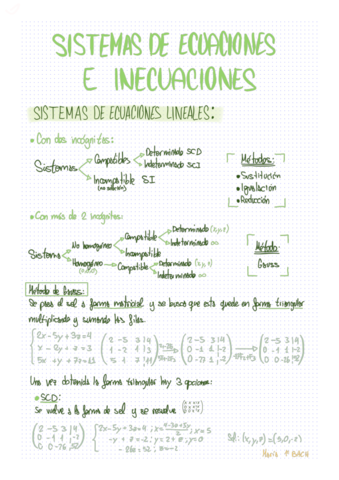 SISTEMAS DE ECUACIONES
E INECUACIONES
SISTEMAS DE ECUACIONES LINEALES:
• Con dos incógnitas:
Sistemas
Compatibles
Determinado SCD
Indeterminado SCI
Incompatible SI
(no solución)
Métodos:
• Sustitución
• Igualación
• Reducción
• Con más de 2 incógnitas:
Sistema
No homogéneo
Compatible
Determinado (x,y,z)
Indeterminado ∞
Incompatible
Homogéneo
Compatible
Determinado (x,y,z)
Indeterminado ∞
Método:
Gauss
Método de Gauss:
Se pasa el sel a forma matricial y se busca que esta quede en forma triangular
multiplicando y sumando las filas.
2x-5y+3z=4
x-2y+z=3
5x+y+7z=11
Una vez obtenida la forma triangular hay 3 opciones:
• SCD:
Se vuelve a la forma de sel y se resuelve
2x-5y+3z=4
-y+z=-2
-26z=52; z=-2
Sol: (x,y,z)=(5,0,-2)